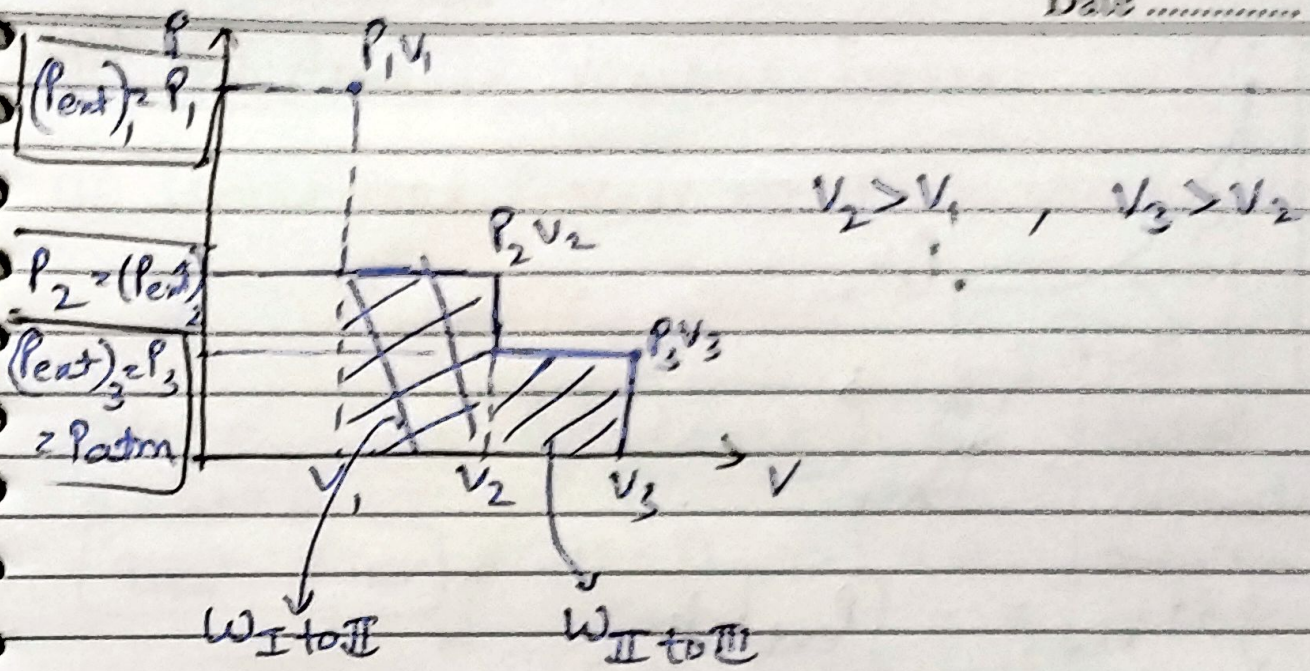 Date ..............
P
P₁V₁
(Pext)₁ = P₁
V₂ > V₁ , V₃ > V₂
P₂V₂
P₂ = (Pext)₂
P₃V₃
(Pext)₃ = P₃
= Patm
V₁ V₂ V₃ V
W I to II W II to III